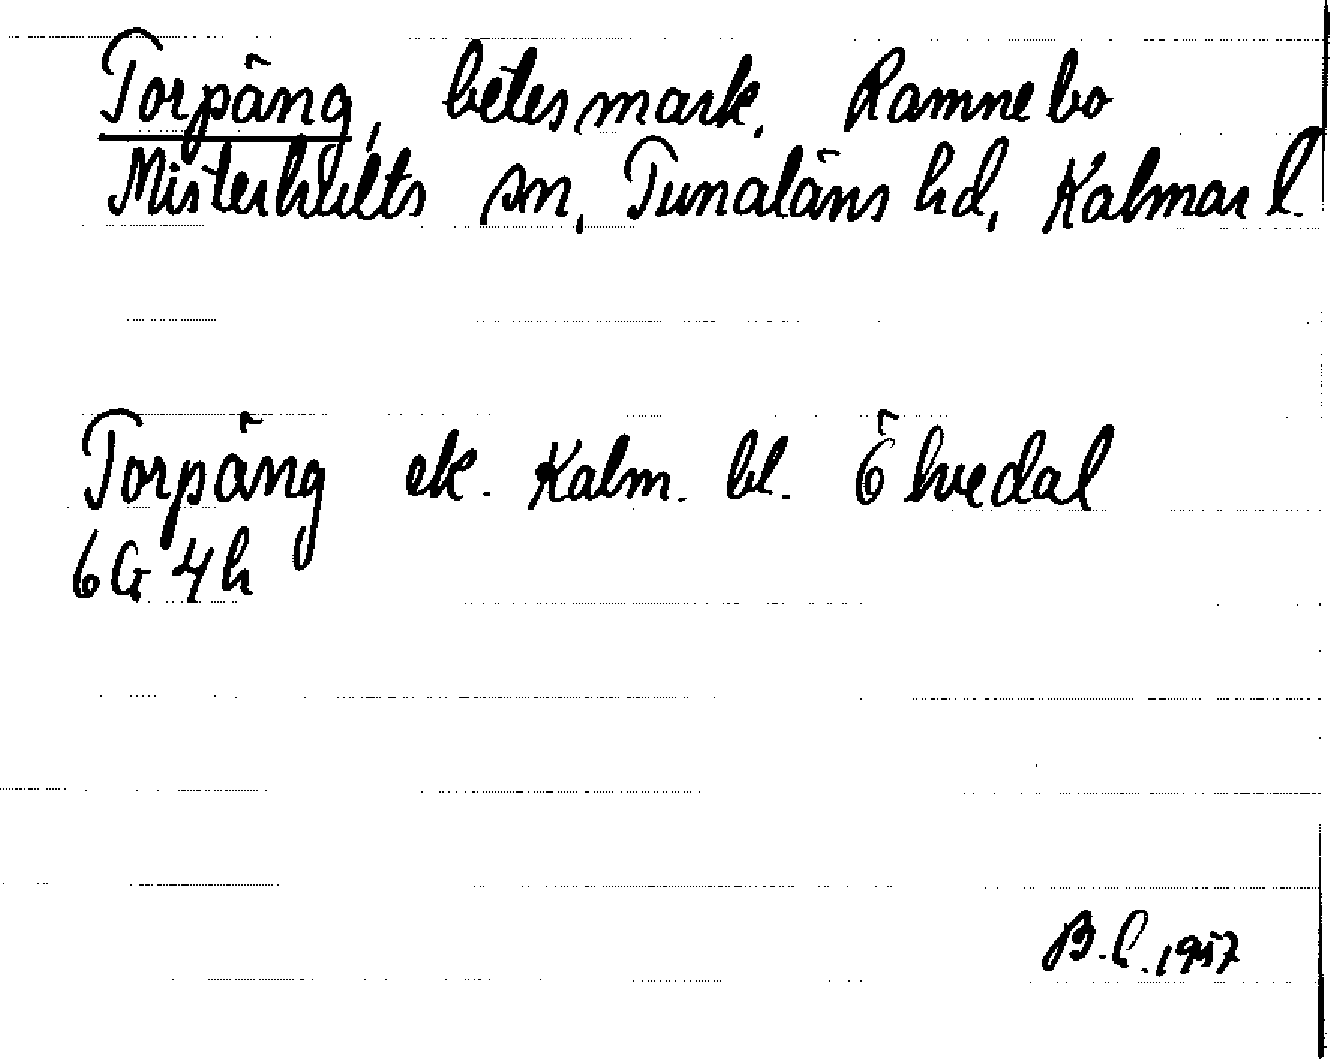 Torpäng, betesmark, Ramnebo
Misterhults sn, Tunaläns hd, Kalmar l.
Torpäng ek. Kalm. bl. Ö hvedal
6G 4h
B.L. 1957